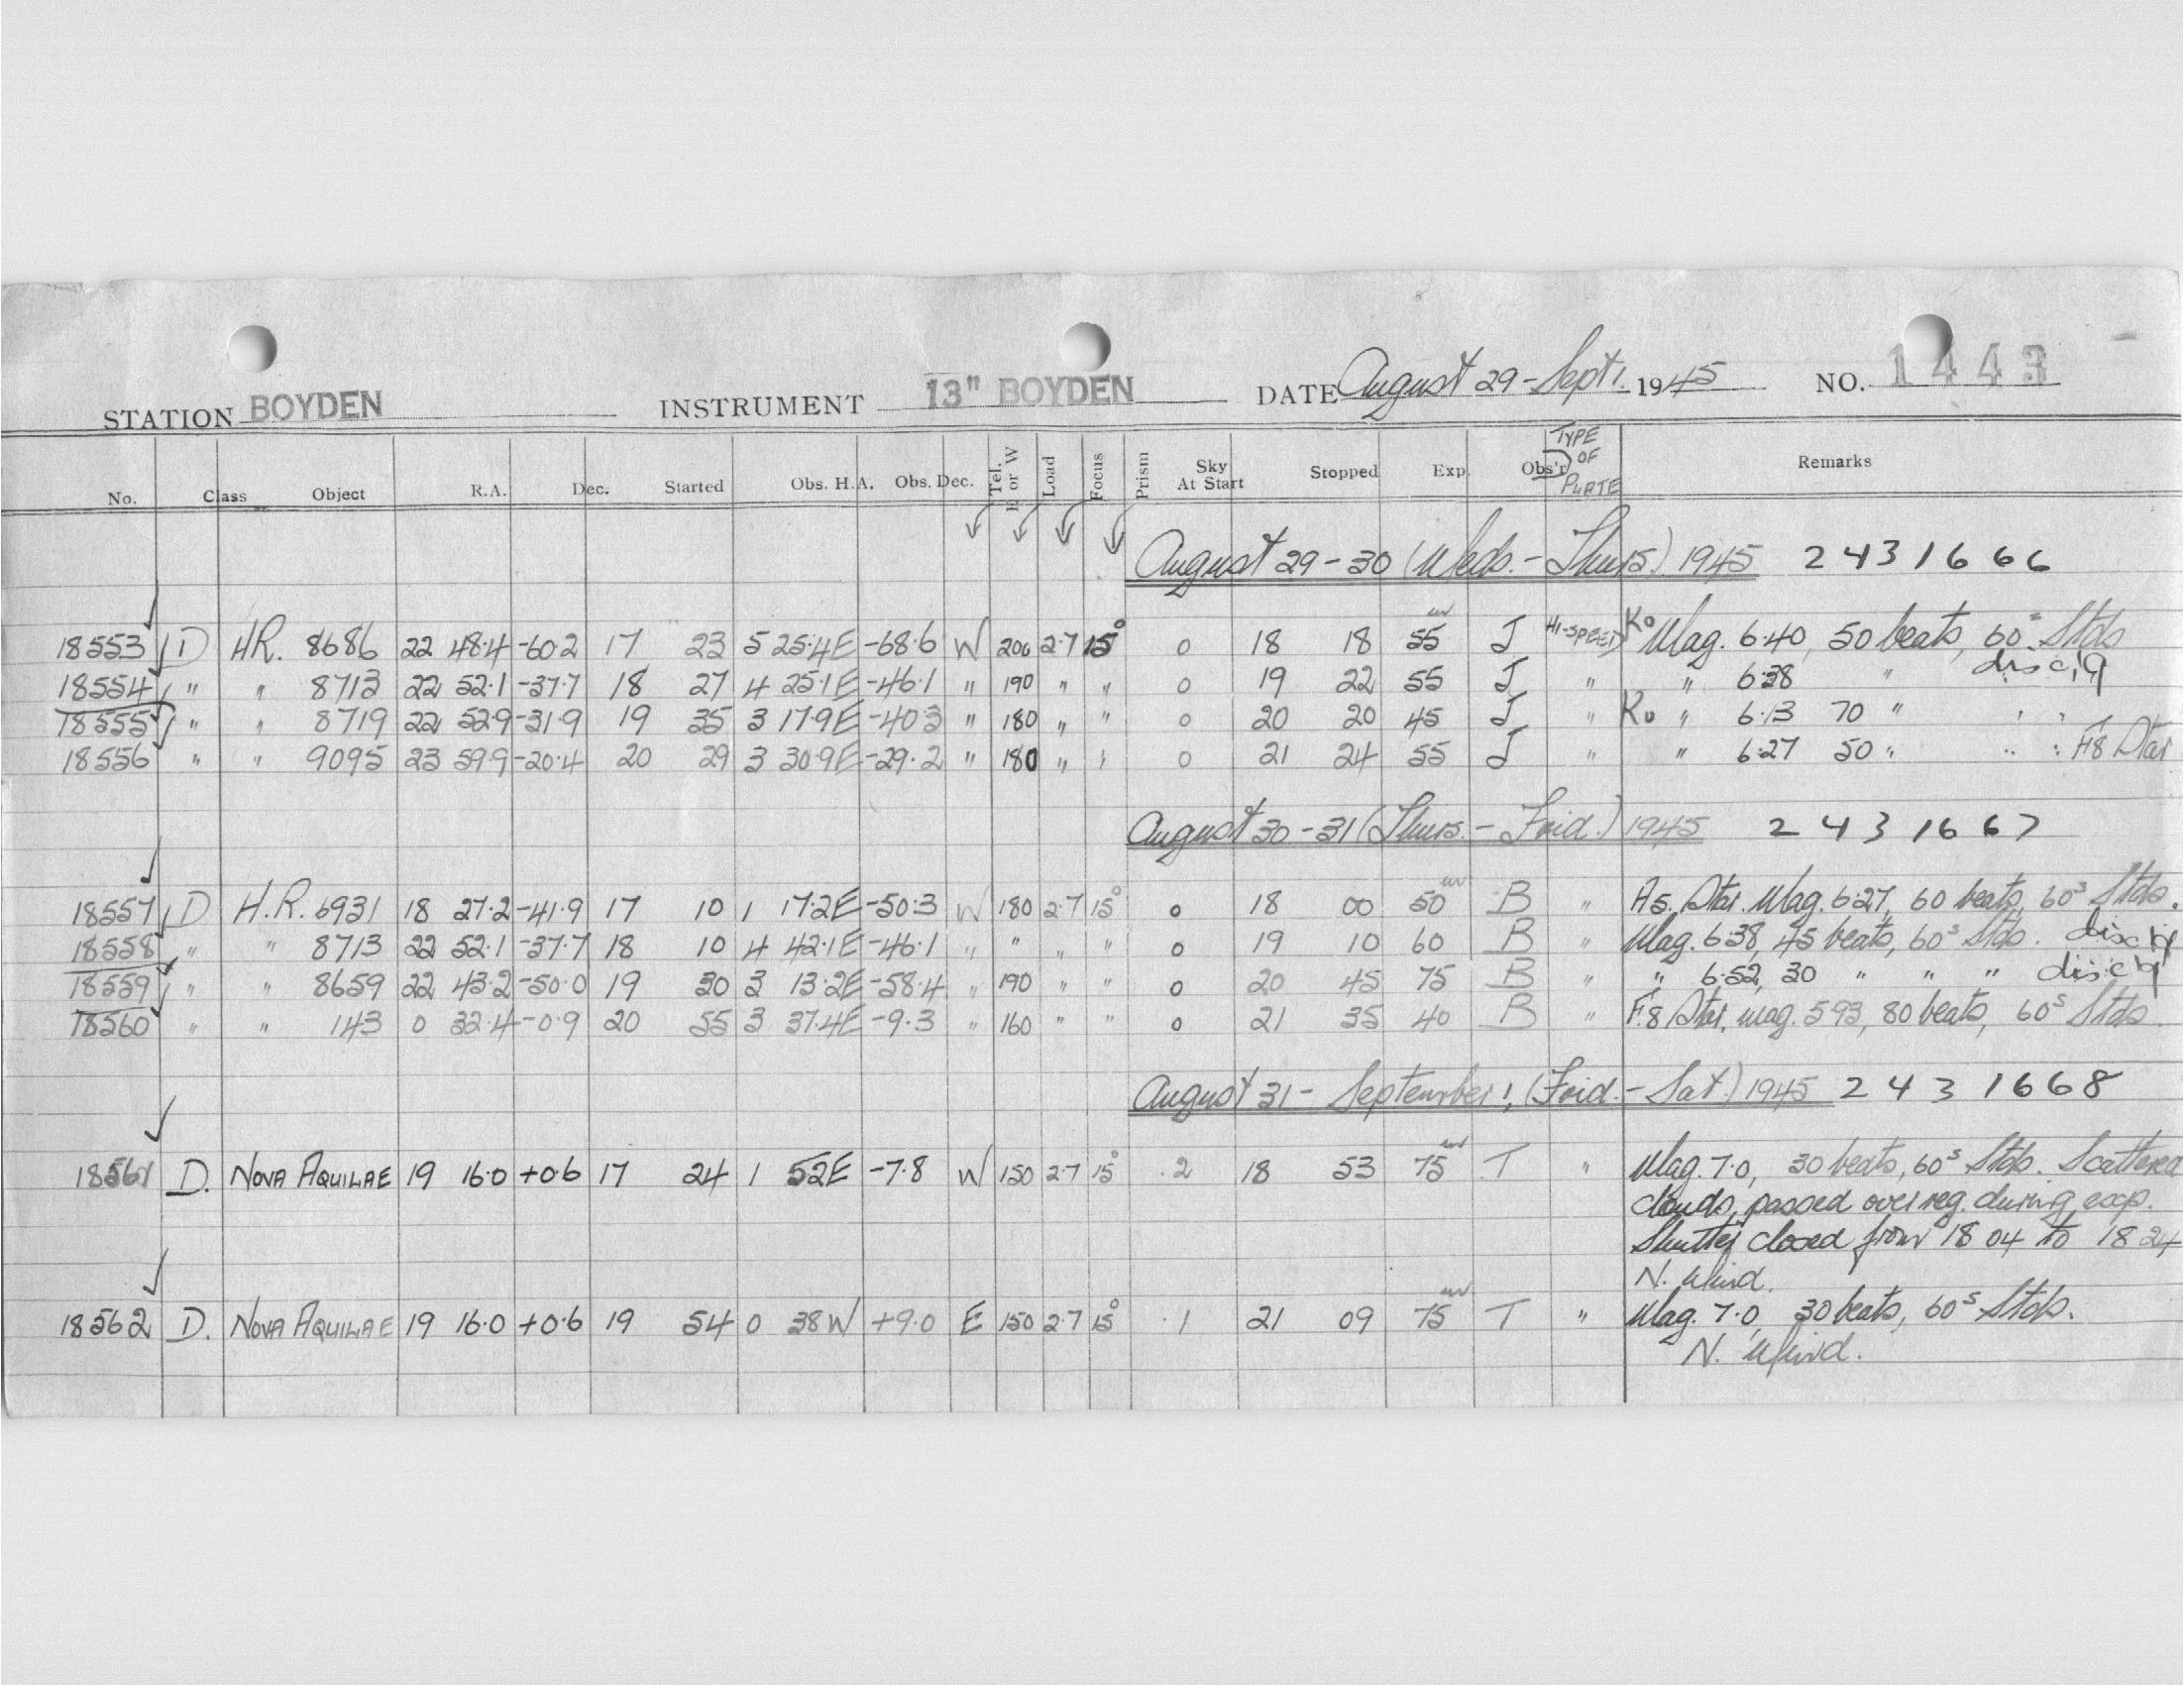 STATION BOYDEN INSTRUMENT 13" BOYDEN DATE August 29 - Sept 1. 1945 NO. 1443
No. Class Object R.A. Dec. Started Obs. H.A. Obs. Dec. Tel. E or W Load Focus Prism Sky At Start Stopped Exp. Obs'r TYPE OF PLATE Remarks
August 29-30 (Weds. - Thurs.) 1945 2431666
18553 D HR. 8686 22 48.4 -60.2 17 23 5 25.4E -68.6 W 200 2.7 15° 0 18 18 55 J HI-SPEED K0 Mag. 6.40, 50 beats, 60s Stds
18554 " " 8713 22 52.1 -37.7 18 27 4 25.1E -46.1 " 190 " " 0 19 22 55 J " " 6.38 "
18555 " " 8719 22 52.9 -31.9 19 35 3 17.9E -40.3 " 180 " " 0 20 20 45 J " K0 " 6.13 70 " " "
18556 " " 9095 23 59.9 -20.4 20 29 3 30.9E -29.2 " 180 " " 0 21 24 55 J " " 6.27 50 " " " F8 Star
August 30-31 (Thurs. - Frid.) 1945 2431667
18557 D H.R. 6931 18 27.2 -41.9 17 10 1 17.2E -50.3 W 180 2.7 15° 0 18 00 50 B " A5. Star. Mag. 6.27, 60 beats, 60s Stds.
18558 " " 8713 22 52.1 -37.7 18 10 4 42.1E -46.1 " " " " 0 19 10 60 B " Mag. 6.38, 45 beats, 60s Stds.
18559 " " 8659 22 43.2 -50.0 19 30 3 13.2E -58.4 " 190 " " 0 20 45 75 B " " 6.52, 30 " " "
18560 " " 143 0 32.4 -0.9 20 55 3 37.4E -9.3 " 160 " " 0 21 35 40 B " F.8 Star, mag. 5.93, 80 beats, 60s Stds.
August 31 - September 1, (Frid. - Sat.) 1945 2431668
18561 D. NOVA AQUILAE 19 16.0 +0.6 17 24 1 52E -7.8 W 150 2.7 15° .2 18 53 75 T " Mag. 7.0, 30 beats, 60s Stds. Scattered
clouds, passed over reg. during exp.
Shutter closed from 18 04 to 18 24
N. Wind.
18562 D. NOVA AQUILAE 19 16.0 +0.6 19 54 0 38W +9.0 E 150 2.7 15° .1 21 09 75 T " Mag. 7.0, 30 beats, 60s Stds.
N. Wind.